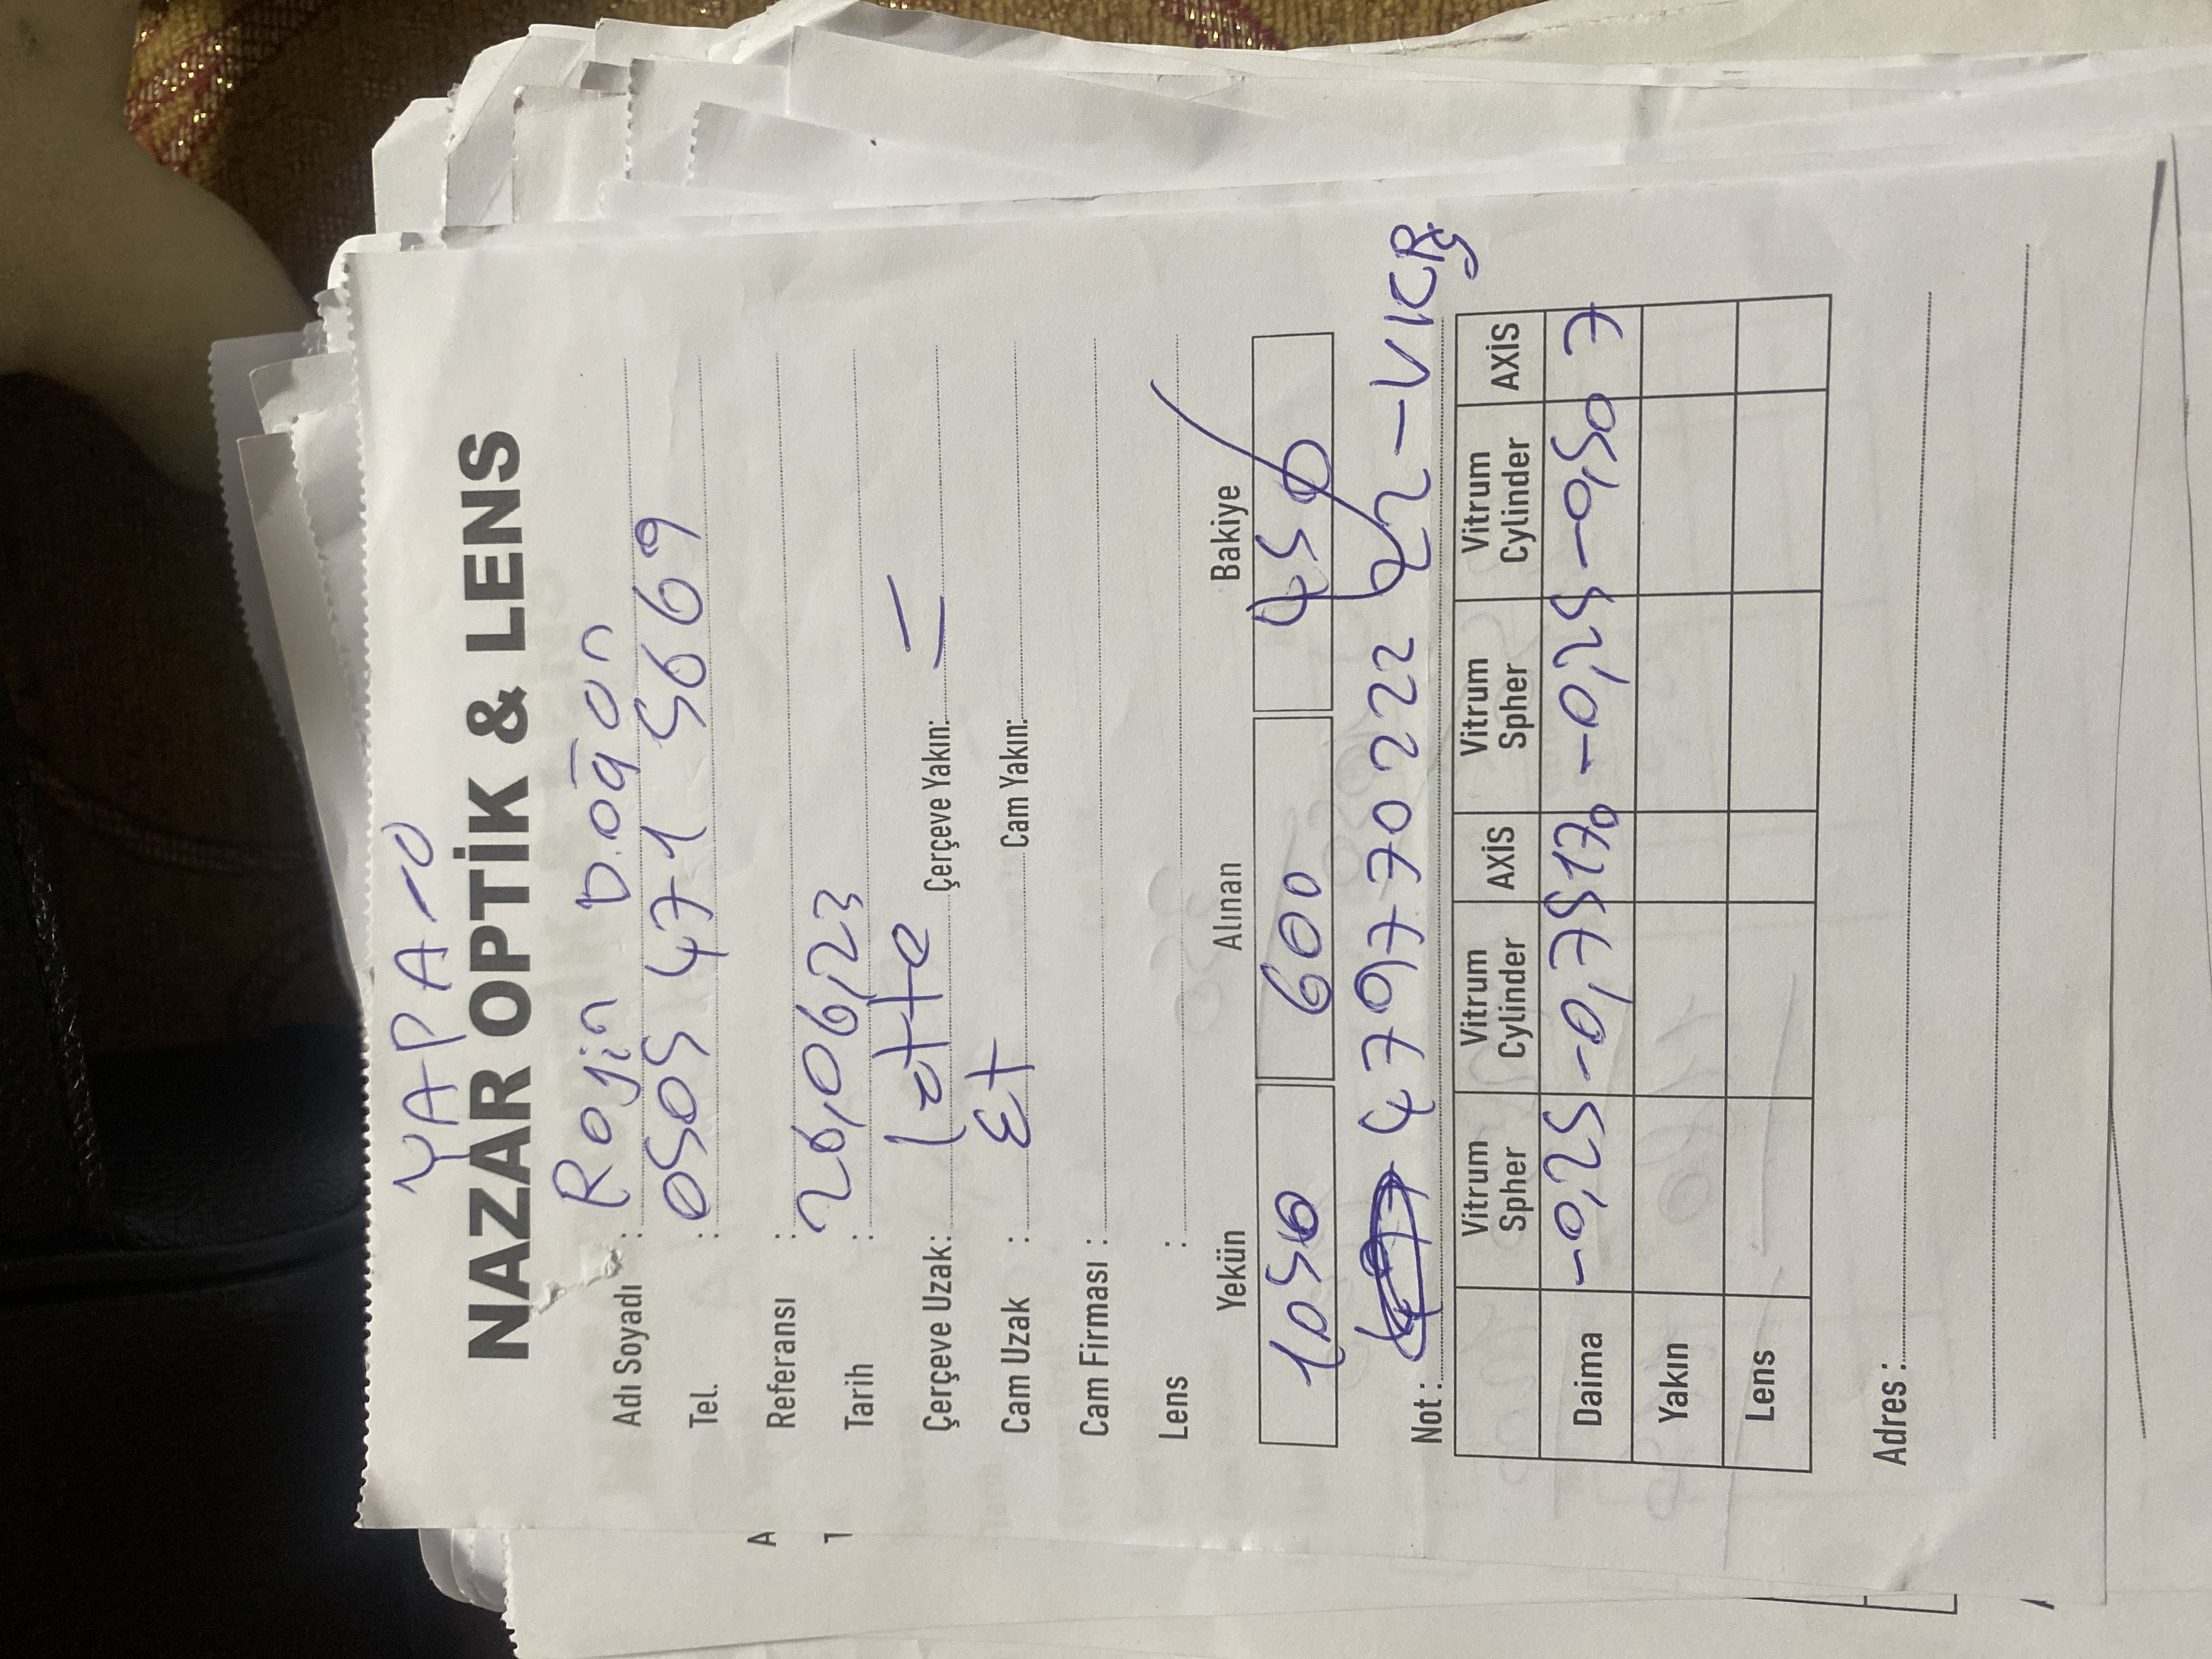 YAPA-O
NAZAR OPTİK & LENS
Adı Soyadı : Rojin Doğan
Tel. : 0505 471 5669
Referansı :
Tarih : 26,06,23
Çerçeve Uzak: latte Çerçeve Yakın:
Cam Uzak : Ex Cam Yakın:
Cam Firması :
Lens :
Yekün Alınan Bakiye
1050 600 450
Not : 479770222 22-VKRŞ
Vitrum Spher Vitrum Cylinder AXİS Vitrum Spher Vitrum Cylinder AXİS
Daima -0,25 -0,75 170 -0,25 -0,50 7
Yakın
Lens
Adres :